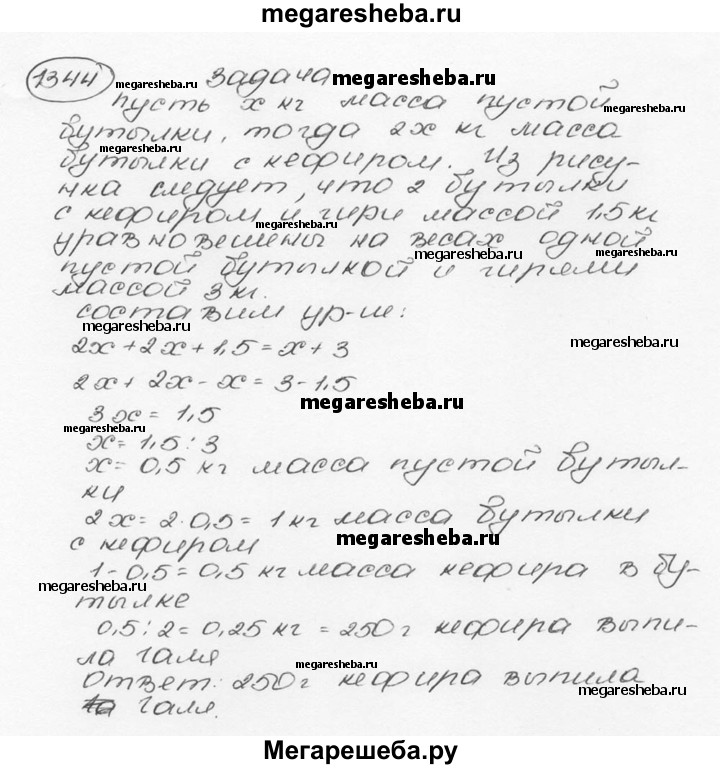 megaresheba.ru
1344 megaresheba.ru задача megaresheba.ru
пусть х кг масса пустой
бутылки, тогда 2х кг масса
megaresheba.ru
бутылки с кефиром. Из рису-
нка следует, что 2 бутылки
с кефиром и гири массой 1,5 кг
megaresheba.ru
уравновешены на весах одной
пустой бутылкой и гирями
массой 3 кг. megaresheba.ru
составим ур-ие:
megaresheba.ru
2х+2х+1,5=х+3 megaresheba.ru
2х+2х-х=3-1,5
megaresheba.ru
3х=1,5
megaresheba.ru
х=1,5:3
х=0,5 кг масса пустой бутыл-
ки
2х=2·0,5=1кг масса бутылки
с кефиром megaresheba.ru
1-0,5=0,5 кг масса кефира в бу-
megaresheba.ru
тылке
0,5:2=0,25 кг=250г кефира выпи-
ла галя megaresheba.ru
Ответ: 250г кефира выпила
megaresheba.ru
галя.
Мегарешеба.ру